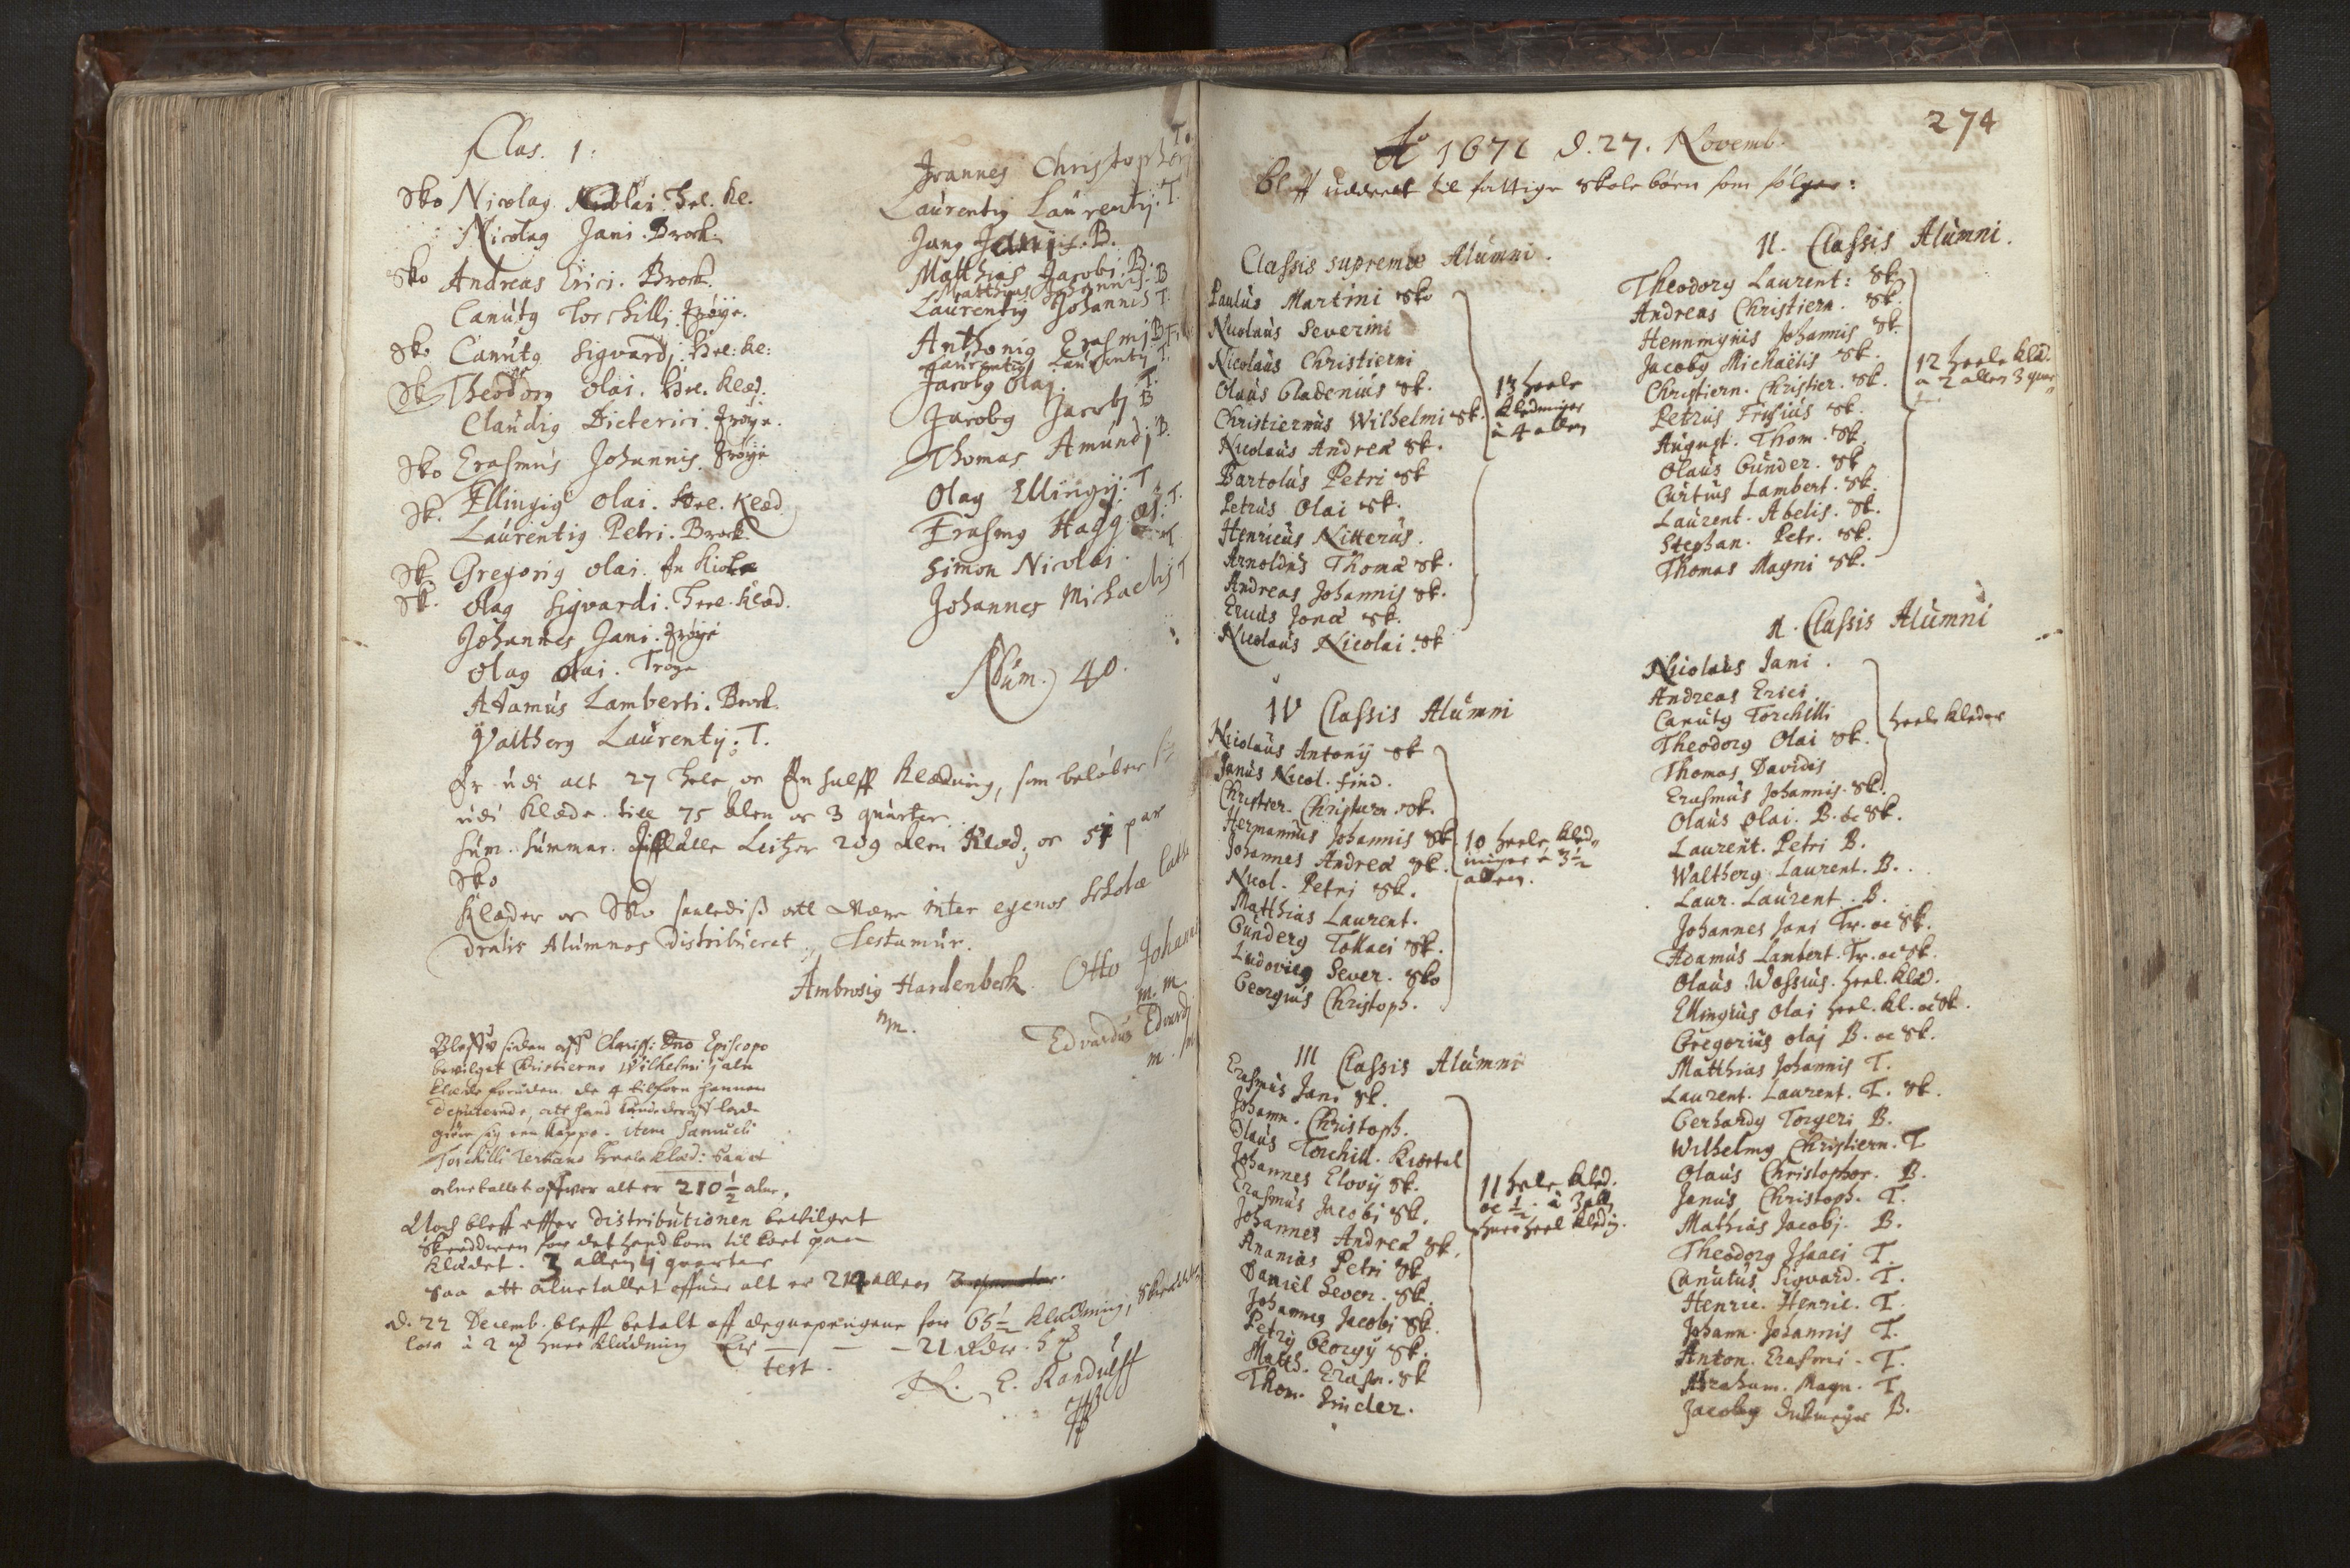 Clas. 1:
Sko Nicolaq Nicolai. Heel. Kl.
Nicolaq Jani. Brock.
Sko Andreas Erici. Brock.
Canutq Torchilli. Trøye.
Sko Canutq Sigvardj. Heel: Kl:
Sk Theodorq Olai. Heel. Klæd.
Claudiq Dieterici. Trøye.
Sko Erasmus Johannis. Trøye
Sk. Ellingiq Olai. Heel. Klæd.
Laurentiq Petri. Brock.
Sk Gregoriq Olai. En Kiole
Sk. Olaq Sigvardi. Heel. Klæd.
Johannes Jani. Trøye
Olaq Olai. Trøye
Adamus Lamberti. Brock.
Valtherq Laurentij. T.
Joannes Christophori T.
Laurentiq Laurentij. T.
Janq Janj. B.
Matthias Jacobi. B.
Matthias Johannis. B
Laurentiq Johannis T.
Anthoniq Erasmj B
Laurentiq Laurentij. T.
Jacobq Olaj. T.
Jacobq Jacobj B
Thomas Amundj B.
Olaq Ellingij. T
Erasmq Hagg. T.
Simon Nicolai. T
Johannes Michaelis T
(Sum.) 40.
Er udi alt 27 Hele oc En halff Klædning, som beløber
udi Klæde till 75 Alen oc 3 quarter.
Sum. Summar. Leitzer 209 Alen Klæd; oc 51 par
Sko
Klæder oc Sko saaledis att være inter egenos Scholæ Cathe
dralis Alumnos distribueret, Testamur.
Ambrosiq Hardenbeck mm.
Otto Johann m. m.
Edvardus Edvardj m. m
Bleff siden aff Clariss: Dno Episcopo
bevilget Christierno Wilhelmi 1 aln
Klæde foruden de 4 tilforn hannem
deputerede, att hand kunde deraff lade
giøre sig een kappe. item Samueli
Torchilli Tertiano heele Klæd: saa at
alnetallet offver alt er 210 1/2 alne.
Noch bleff effter distributionen bevilget
Skredderen for det hand kom til kort paa
Klædet. 3 allen 1j quarter
saa att alnetallet offuer alt er 214 allen
d. 22 Decemb. bleff betalt aff degnepengene for 65 1/2 Klædning, Skredder
løn à 2 hver Klædning Er — — — 21 Rdr. 5
test.
E. Randulff
274
Ao 1671 d. 27. Novemb.
Bleff uddeelt til fattige Skolebørn som følger:
Classis supremæ Alumni.
Paulus Martini Sko
Nicolaus Severini
Nicolaus Christierni
Olaus Gladenius Sk.
Christiernus Wilhelmi Sk.
Nicolaus Andreæ Sk.
Bartolus Petri Sk
Petrus Olai Sk.
Henricus Nitterus.
Arnoldus Thomæ Sk.
Andreas Johannis Sk.
Ericus Jonæ Sk.
Nicolaus Nicolai. Sk
13 heele
Kledninger
à 4 allen
IV Classis Alumni
Nicolaus Antonij Sk
Janus Nicol. find.
Christier. Christiern. Sk.
Hermannus Johannis Sk
Johannes Andreæ Sk.
Nicol. Petri Sk.
Matthias Laurent.
Gunderq Tollaci Sk.
Ludovicq Sever. Sko
Georgius Christoph.
10 heele Kled-
ninger à 3 1/2
allen.
III Classis Alumni
Erasmus Jani Sk.
Johann. Christoph.
Olaus Torchill. Kiortel
Johannes Elovij Sk.
Erasmus Jacobi Sk.
Johannes Andreæ Sk.
Ananias Petri Sk
Daniel Sever. Sk.
Johannes Jacobi Sk.
Petrq Georgij Sk.
Matth. Erasm. Sk
Thom. Gunder.
11 hele Kled.
oc 1/2. à 3 all.
huer heel Kledn.
II. Classis Alumni.
Theodorq Laurent: Sk
Andreas Christiern. Sk.
Henningius Johannis Sk.
Jacobq Michaelis Sk.
Christiern. Christier. Sk.
Petrus Frisius Sk.
August. Thom. Sk.
Olaus Gunder. Sk
Curtius Lambert. Sk.
Laurent. Abelis. Sk.
Stephan. Petr. Sk.
Thomas Magni Sk.
12 heele Klæd.
a 2 allen 3 quar
I. Classis Alumni
Nicolaus Jani.
Andreas Erici.
Canutq Torchilli
Theodorq Olai Sk.
Thomas Davidis
Erasmus Johannis. Sk.
heele Kleder
Olaus Olai. B. oc Sk.
Laurent. Petri B.
Waltherq Laurent. B.
Laur. Laurent. B.
Johannes Jani Tr. oc Sk.
Adamus Lambert. Tr. oc Sk.
Olaus Wossius. heel. Klæd.
Ellingius Olai heel. Kl. oc Sk.
Gregorius Olaj B. oc Sk.
Matthias Johannis T.
Laurent. Laurent. T. Sk.
Gerhardq Torgeri B.
Wilhelmq Christiern. T
Olaus Christopher. B.
Janus Christoph. T.
Mathias Jacobj. B.
Theodorq Isaaci T.
Canutus Sigvard. T.
Henric. Henric. T.
Johann. Johannis T.
Anton. Erasmi. T.
Abraham. Magn. T
Jacobq B.